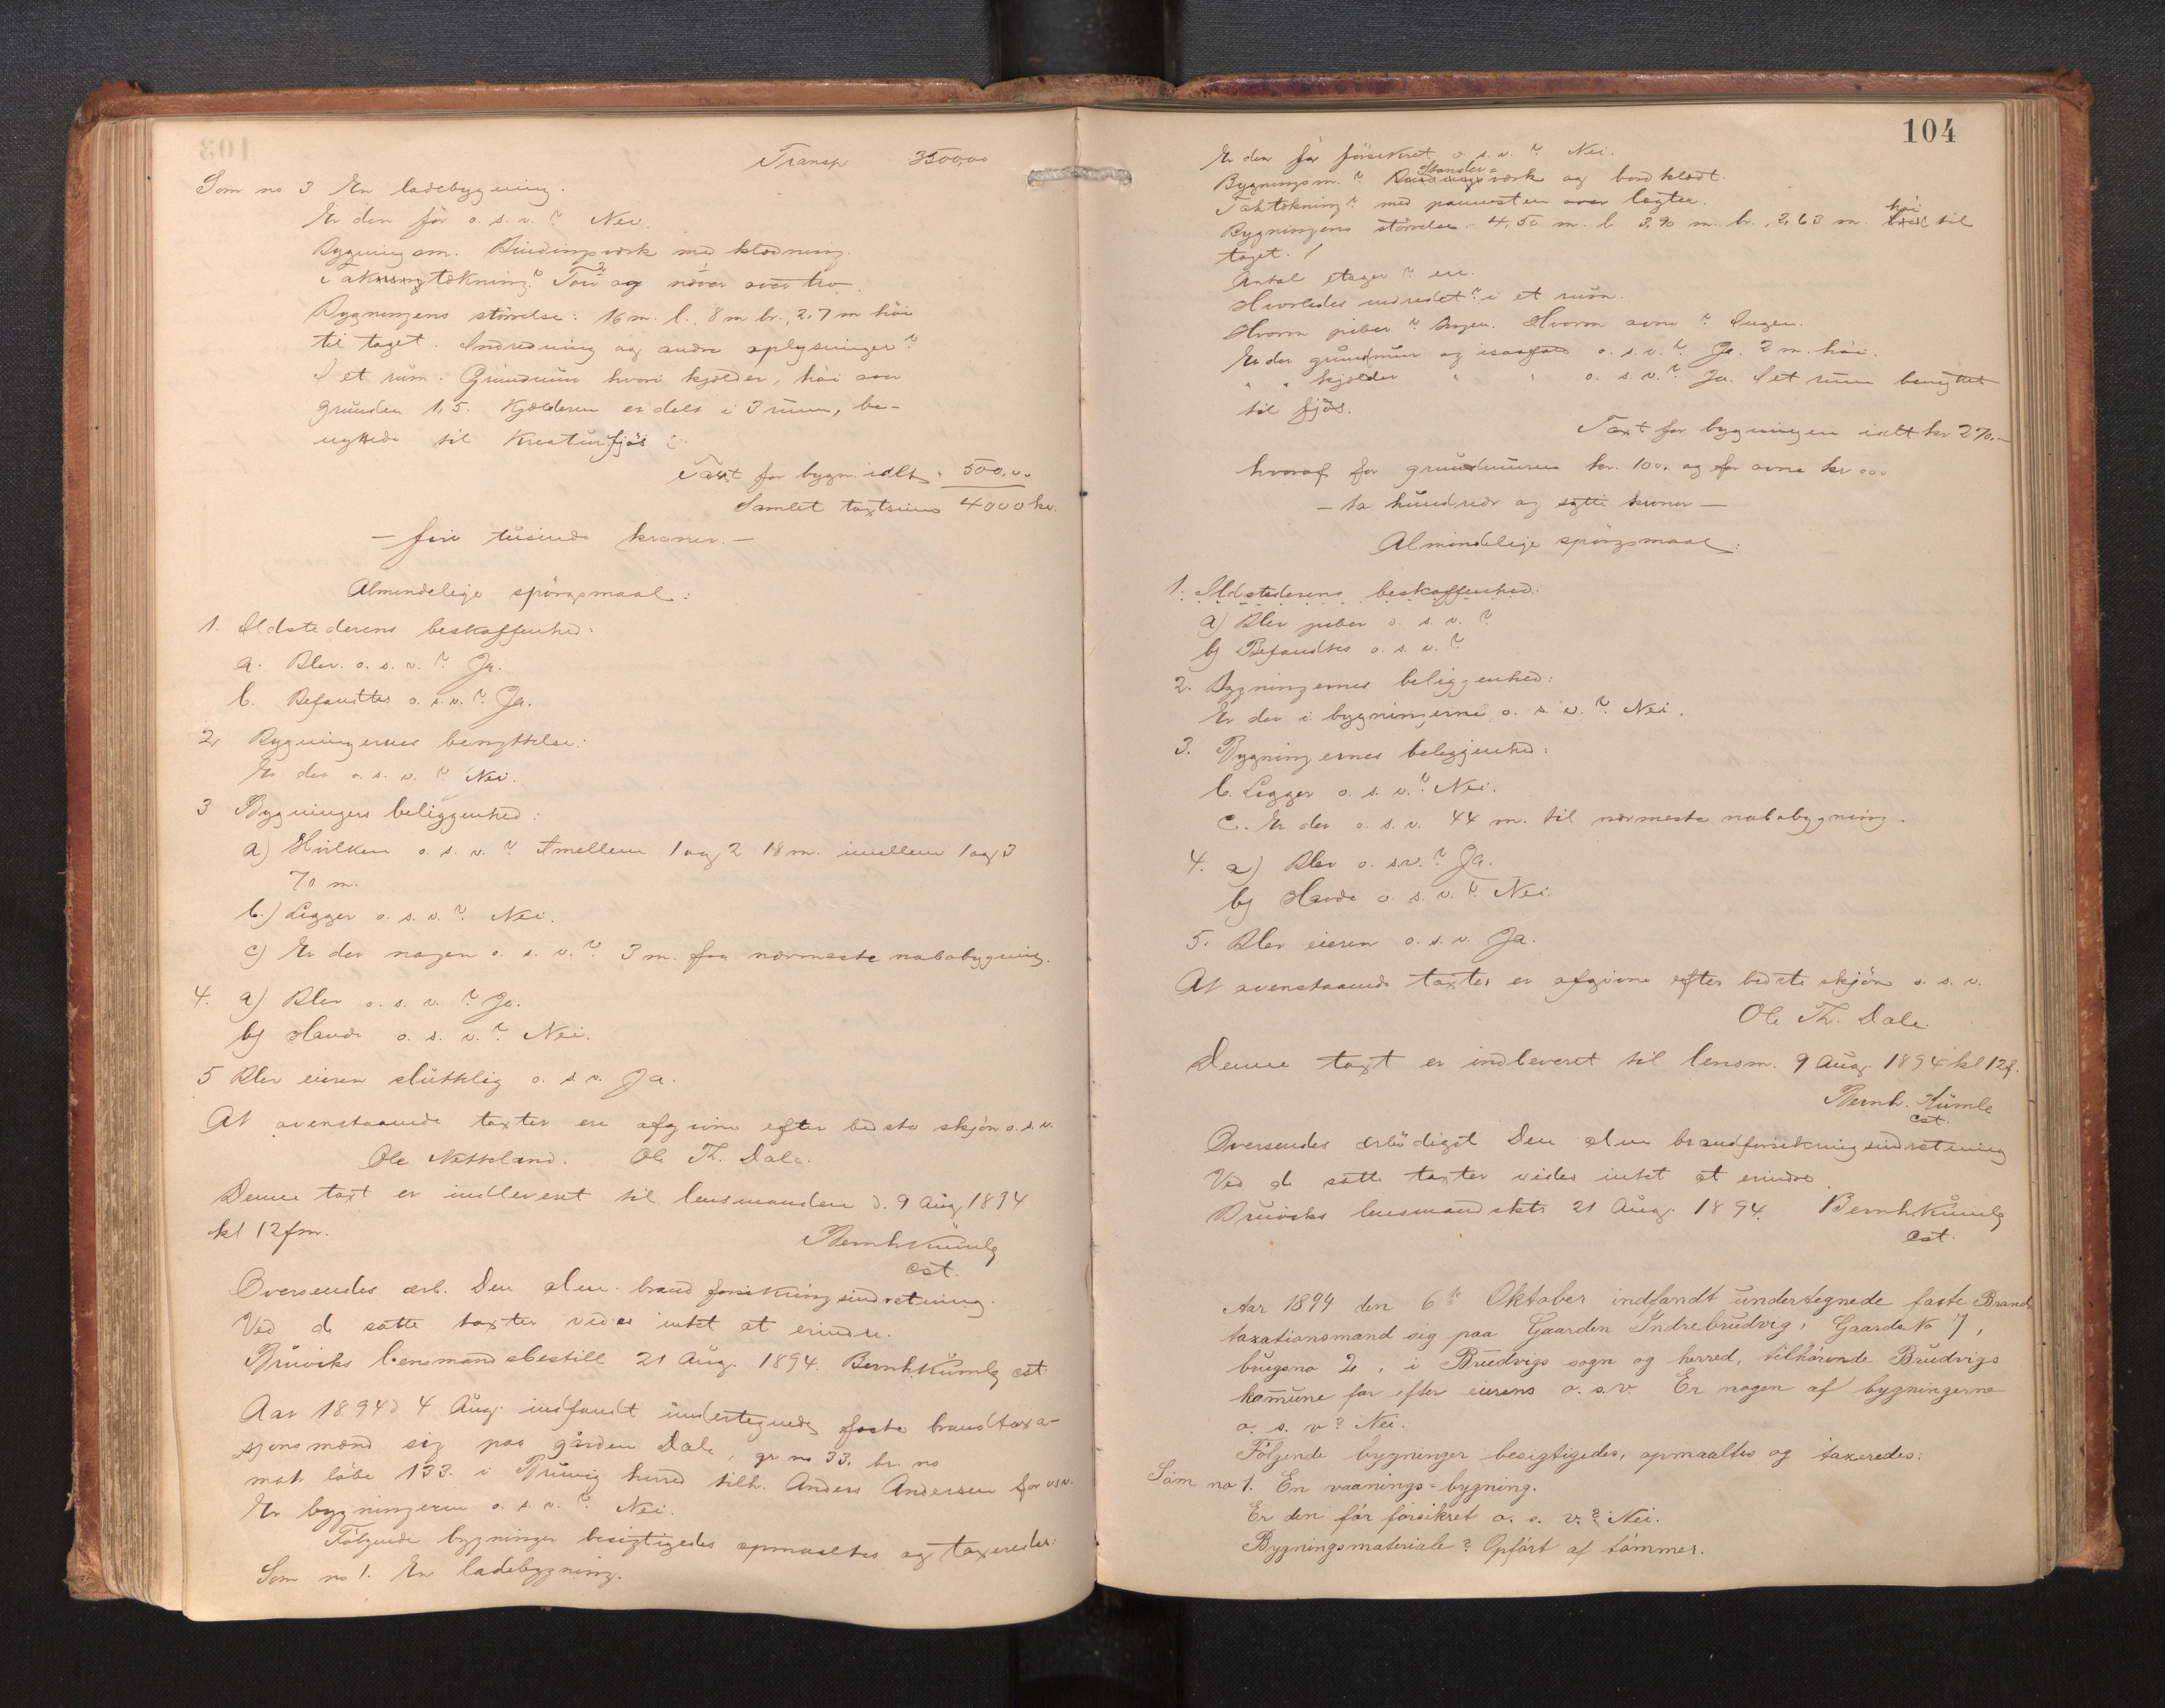 Transp 3500,00
Som no 3 En ladebygning.
Er den før o. s. v.? Nei.
Bygning am. Bindingsværk med klædning.
Taktækning? Torv og næver over tro.
Bygningens størrelse: 16 m. l., 8 m br., 2,7 m høi
til taget. Indredning og andre oplysninger?
I et rum. Grundmur hvori kjælder, høi over
grunden 1,5. Kjælderen er delt i 3 rum, be-
nyttede til Kreaturfjøs
Taxt for bygn. idlt " 500.00
Samlet taxtsum 4000 kr.
— fire tusinde kroner. —
Almindelige spörgsmaal:
1. Ildstedernes beskaffenhed:
a. Blev. o. s. v.? Ja.
b. Befandtes o. s. v.? Ja.
2 Bygningernes benyttelse:
Er der o. s. v.? Nei.
3 Bygningers beliggenhed:
a) Hvilken o. s. v.? Imellem 1 og 2 18 m. imellem 1 og 3
70 m.
b.) Ligger o. s. v.? Nei.
c) Er der nogen o. s. v.? 3 m. fra nærmeste nabobygning.
4. a) Blev o. s. v.? Ja.
b) Havde o. s. v.? Nei.
5 Blev eieren sluttelig o. s. v. Ja.
At ovenstaaende taxter ere afgivne efter bedste skjön o. s. v.
Ole Netteland. Ole Th. Dale.
Denne taxt er indleveret til lensmanden d. 9 Aug. 1894
kl 12 fm.
Bernh Kumle
cst.
Oversendes ærb. Den alm. brandforsikringsindretning.
Ved de satte taxter vides intet at erindre.
Bruviks lensmandsbestill 21 Aug. 1894. Bernh. Kumle cst.
Aar 1894 d 4 Aug. indfandt undertegnede faste brandtaxa-
sjonsmænd sig paa gården Dale, gr no 33. br. no
matr löbe 133. i Bruvig herred tilh. Anders Andersen for osv.
Er bygningerne o. s. v.? Nei.
Følgende bygninger besigtigedes opmaaltes og taxeredes:
Som no 1. En ladebygning.
104
Er den før försikret o. s. v.? Nei.
Bygningsm.? Stænderværk og bordklædt.
Taktækning? med pannesten over lægter.
Bygningens størrelse - 4,50 m. l 3,90 m. br., 2,63 m. høi til
taget.
Antal etager? en.
Hvorledes indredet? i et rum.
Hvorm piber? Ingen. Hvorm ovne? Ingen.
Er der grundmur og isaafald o. s. v.? Ja. 2 m. høi.
" " kjælder " " o. s. v.? Ja. I et rum benyttet
til fjös.
Taxt for bygningen ialt kr 270.—
hvoraf for grundmuren kr. 100. og for ovne kr 000
— to hundrede og sytti kroner —
Almindelige spörgsmaal:
1. Ildstedernes beskaffenhed:
a) Blev piber o. s. v.?
b) Befandtes o. s. v.?
2. Bygningernes beliggenhed:
Er der i bygningerne o. s. v.? Nei.
3. Bygningernes beliggenhed:
b. Ligger o. s. v.? Nei.
c. Er der o. s. v. 44 m. til nærmeste nabobygning.
4. a) Blev o. s. v.? Ja.
b) Havde o. s. v.? Nei.
5. Blev eieren o. s. v. Ja.
At ovenstaaende taxter er afgivne efter bedste skjön o. s. v.
Ole Th. Dale.
Denne taxt er indleveret til lensm. 9 Aug. 1894 kl 12 f.
Bernh. Kumle
cst.
Oversendes ærbödigst Den alm brandforsikringsindretning
Ved de satte taxter vides intet at erindre.
Bruviks lensmandskt. 21 Aug. 1894. Bernh. Kumle
cst.
Aar 1894 den 6te Oktober indfandt undertegnede faste Brand-
taxationsmænd sig paa Gaarden Indrebrudvig, Gaards No 7,
brugsno 2, i Brudvigs sogn og herred, tilhørende Brudvigs
kommune for efter eierens o. s. v. Er nogen af bygningerne
o. s. v? Nei.
Følgende bygninger besigtigedes, opmaaltes og taxeredes:
Som no 1. En vaanings-bygning.
Er den før forsikret o. s. v.? Nei.
Bygningsmateriale? Opført af tømmer.